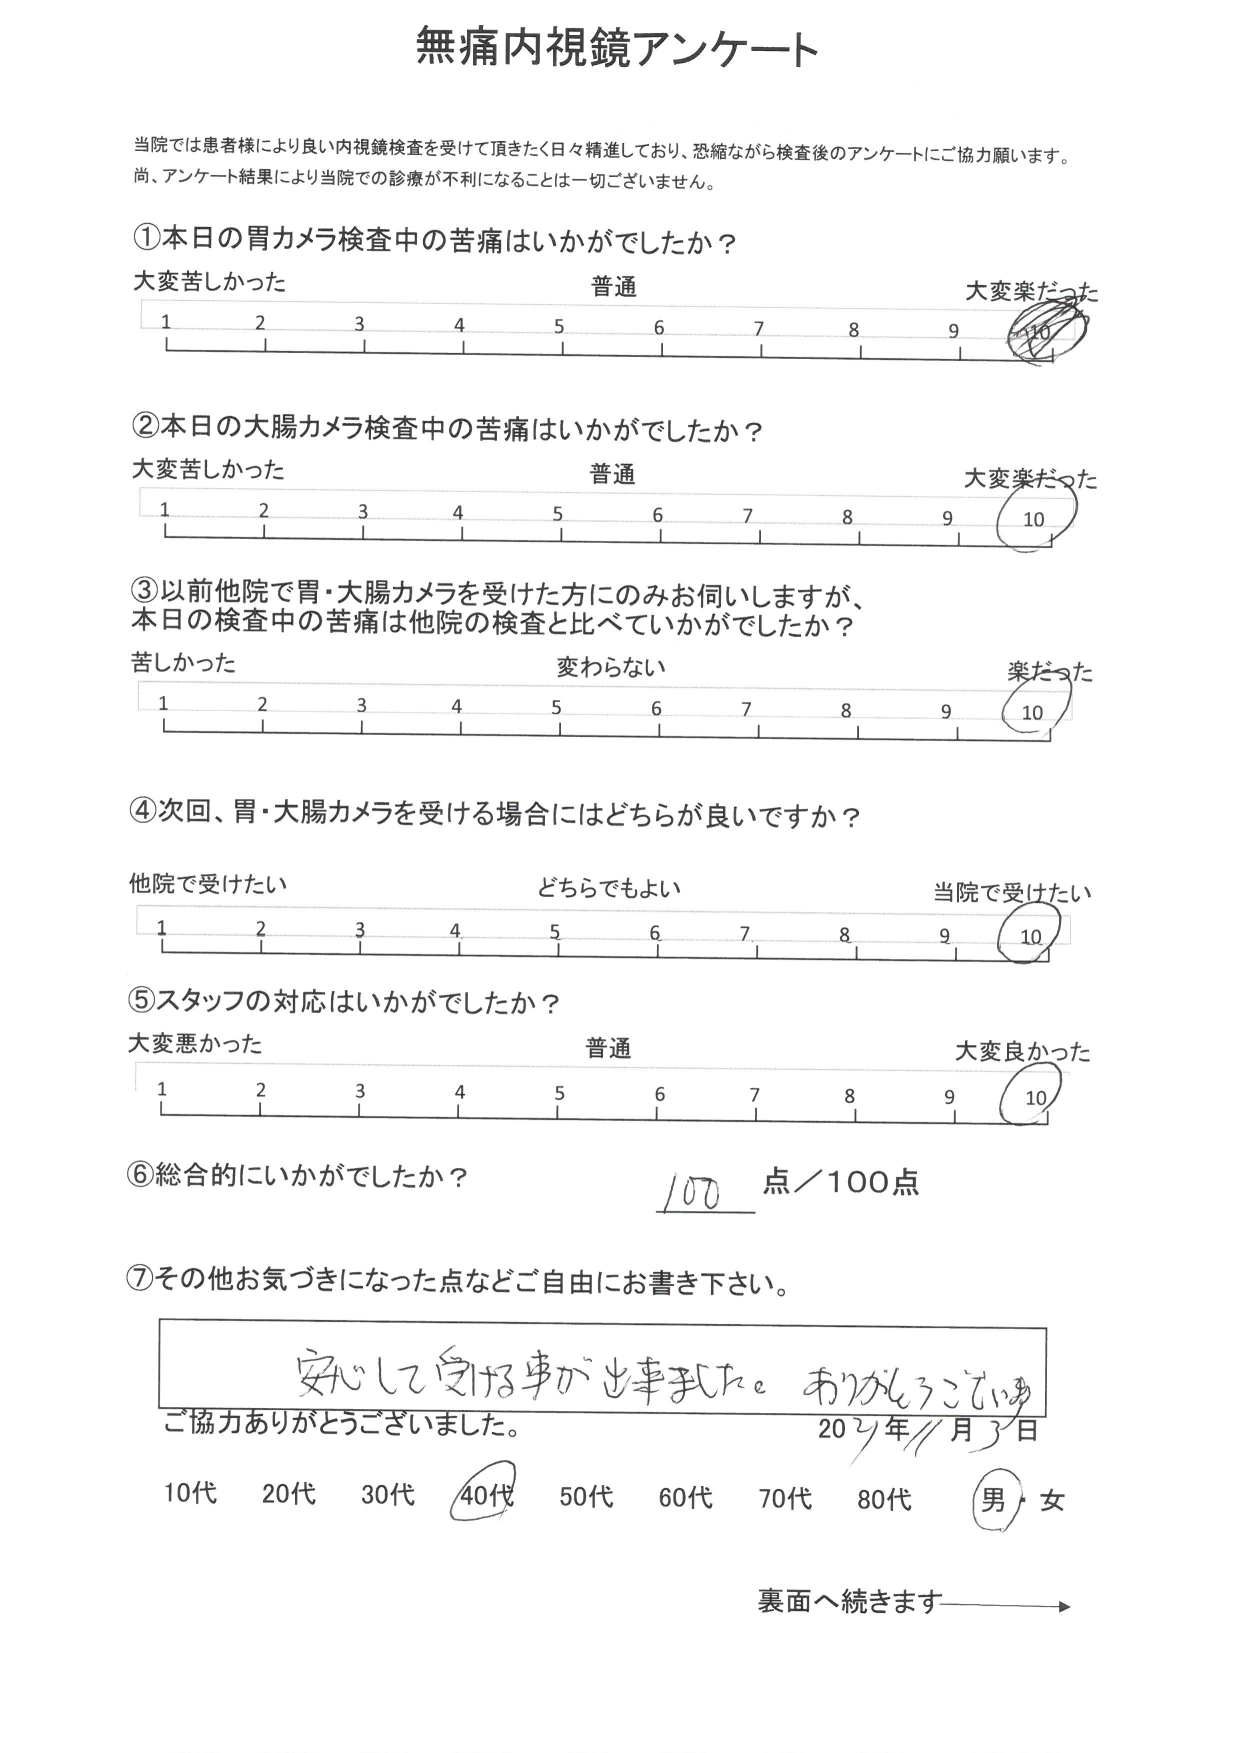 無痛内視鏡アンケート
当院では患者様により良い内視鏡検査を受けて頂きたく日々精進しており、恐縮ながら検査後のアンケートにご協力願います。
尚、アンケート結果により当院での診療が不利になることは一切ございません。
①本日の胃カメラ検査中の苦痛はいかがでしたか？
大変苦しかった 普通 大変楽だった
1 2 3 4 5 6 7 8 9 10
②本日の大腸カメラ検査中の苦痛はいかがでしたか？
大変苦しかった 普通 大変楽だった
1 2 3 4 5 6 7 8 9 10
③以前他院で胃・大腸カメラを受けた方にのみお伺いしますが、
本日の検査中の苦痛は他院の検査と比べていかがでしたか？
苦しかった 変わらない 楽だった
1 2 3 4 5 6 7 8 9 10
④次回、胃・大腸カメラを受ける場合にはどちらが良いですか？
他院で受けたい どちらでもよい 当院で受けたい
1 2 3 4 5 6 7 8 9 10
⑤スタッフの対応はいかがでしたか？
大変悪かった 普通 大変良かった
1 2 3 4 5 6 7 8 9 10
⑥総合的にいかがでしたか？ 100 点／100点
⑦その他お気づきになった点などご自由にお書き下さい。
安心して受ける事が出来ました。 ありがとうございま
ご協力ありがとうございました。 2021年11月3日
10代 20代 30代 40代 50代 60代 70代 80代 男・女
裏面へ続きます